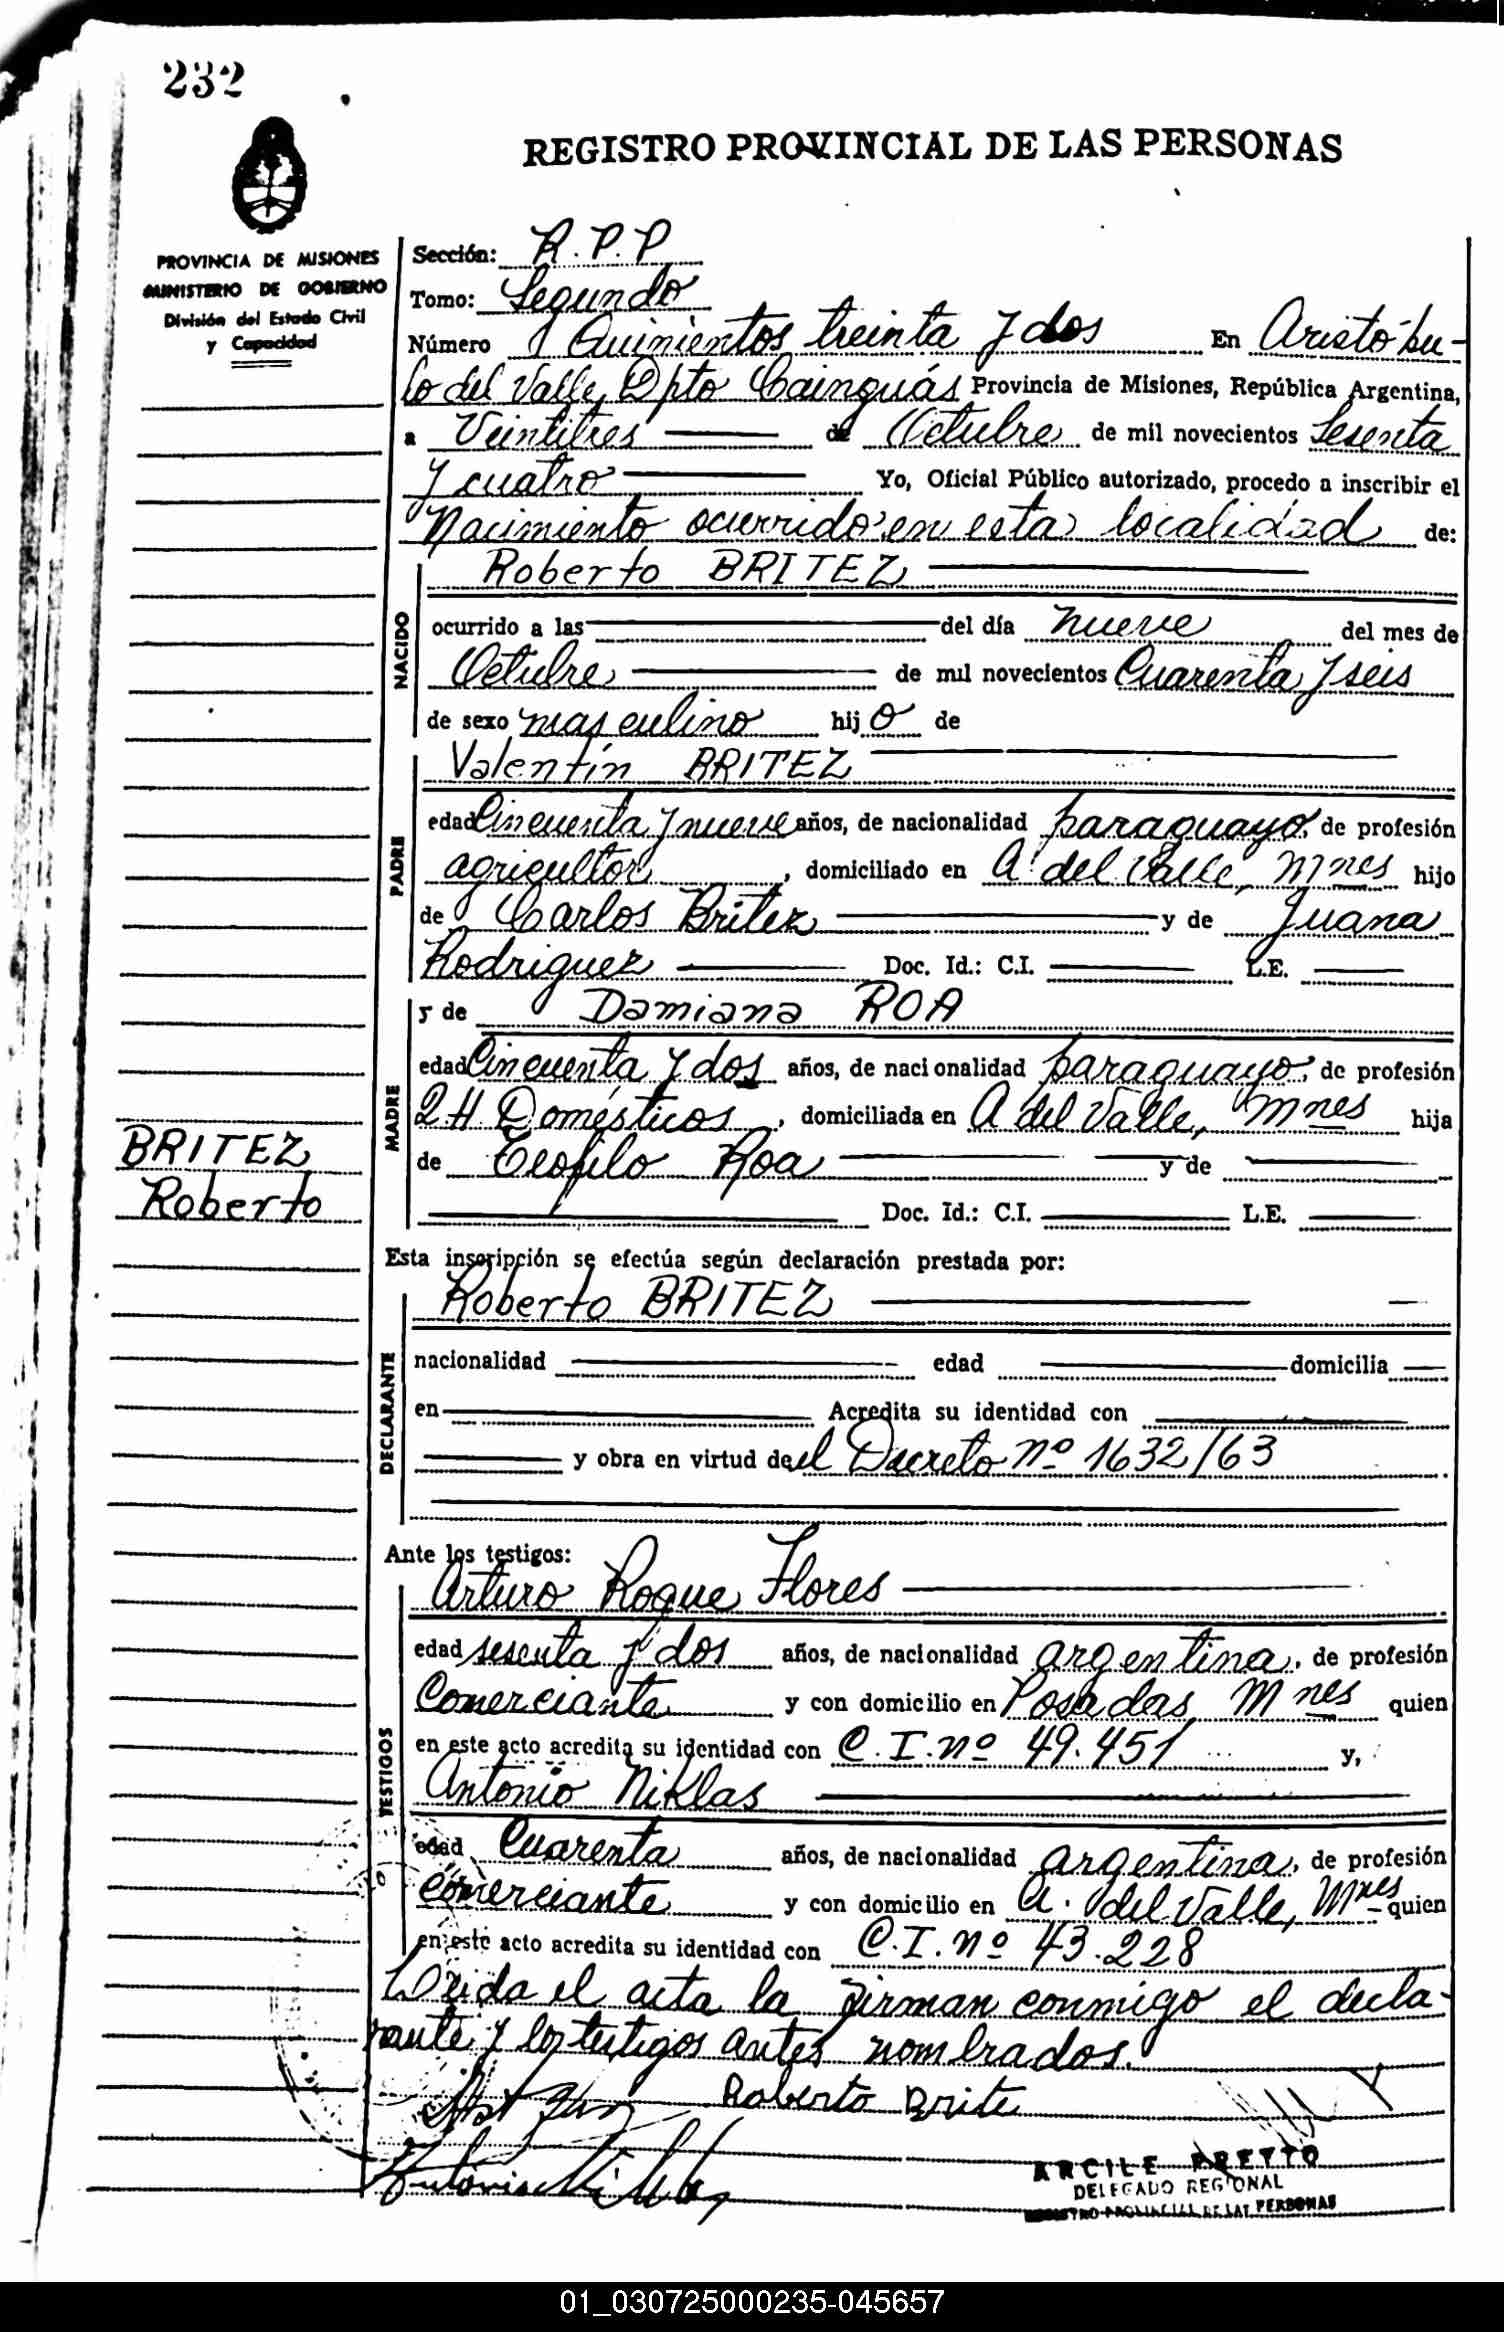 232
REGISTRO PROVINCIAL DE LAS PERSONAS
PROVINCIA DE MISIONES
MINISTERIO DE GOBIERNO
División del Estado Civil
y Capacidad
Sección: R.P.P
Tomo: Segundo
Número Quinientos treinta y dos En Aristóbu-
lo del Valle, Dpto Cainguás Provincia de Misiones, República Argentina,
a Veintitres de Octubre de mil novecientos Sesenta
y cuatro Yo, Oficial Público autorizado, procedo a inscribir el
Nacimiento ocurrido en esta localidad de:
NACIDO
Roberto BRITEZ
ocurrido a las del día nueve del mes de
Octubre de mil novecientos Cuarenta y seis
de sexo masculino hijo de
PADRE
Valentín BRITEZ
edad Cincuenta y nueve años, de nacionalidad paraguayo, de profesión
agricultor, domiciliado en A. del Valle, Mnes hijo
de Carlos Britez y de Juana
Rodriguez Doc. Id.: C.I. L.E.
MADRE
y de Damiana ROA
edad Cincuenta y dos años, de nacionalidad paraguayo, de profesión
Q H. Domésticos, domiciliada en A del Valle, Mnes hija
de Teofilo Roa y de
Doc. Id.: C.I. L.E.
BRITEZ
Roberto
Esta inscripción se efectúa según declaración prestada por:
DECLARANTE
Roberto BRITEZ
nacionalidad edad domicilia
en Acredita su identidad con
y obra en virtud de el Decreto nº 1632/63
Ante los testigos:
TESTIGOS
Arturo Roque Flores
edad sesenta y dos años, de nacionalidad argentina, de profesión
Comerciante y con domicilio en Posadas Mnes quien
en este acto acredita su identidad con C.I. nº 49.451 y,
Antonio Niklas
edad Cuarenta años, de nacionalidad argentina, de profesión
comerciante y con domicilio en A. del Valle, Mnes quien
en este acto acredita su identidad con C.I. nº 43.228
Leida el acta la firman conmigo el decla-
rante y los testigos antes nombrados.
Roberto Brite
ARCILE PRETTO
DELEGADO REGIONAL
REGISTRO PROVINCIAL DE LAS PERSONAS
01_030725000235-045657